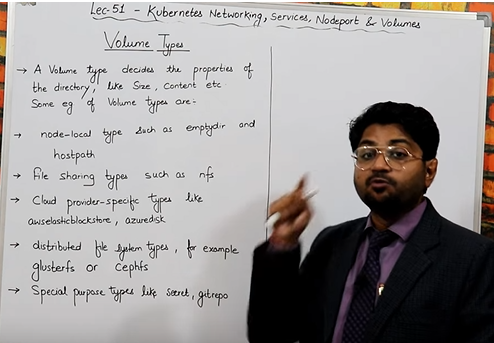 Lec-51 - Kubernetes Networking, Services, Nodeport & Volumes
Volume Types
→ A Volume type decides the properties of
the directory, like Size, Content etc
Some eg of Volume types are:-
→ node-local type Such as emptydir and
hostpath
→ File sharing types such as nfs
→ Cloud provider-specific types like
awselasticblockstore, azuredisk
→ distributed file system types, for example
glusterfs or Cephfs
→ Special purpose types like secret, gitrepo